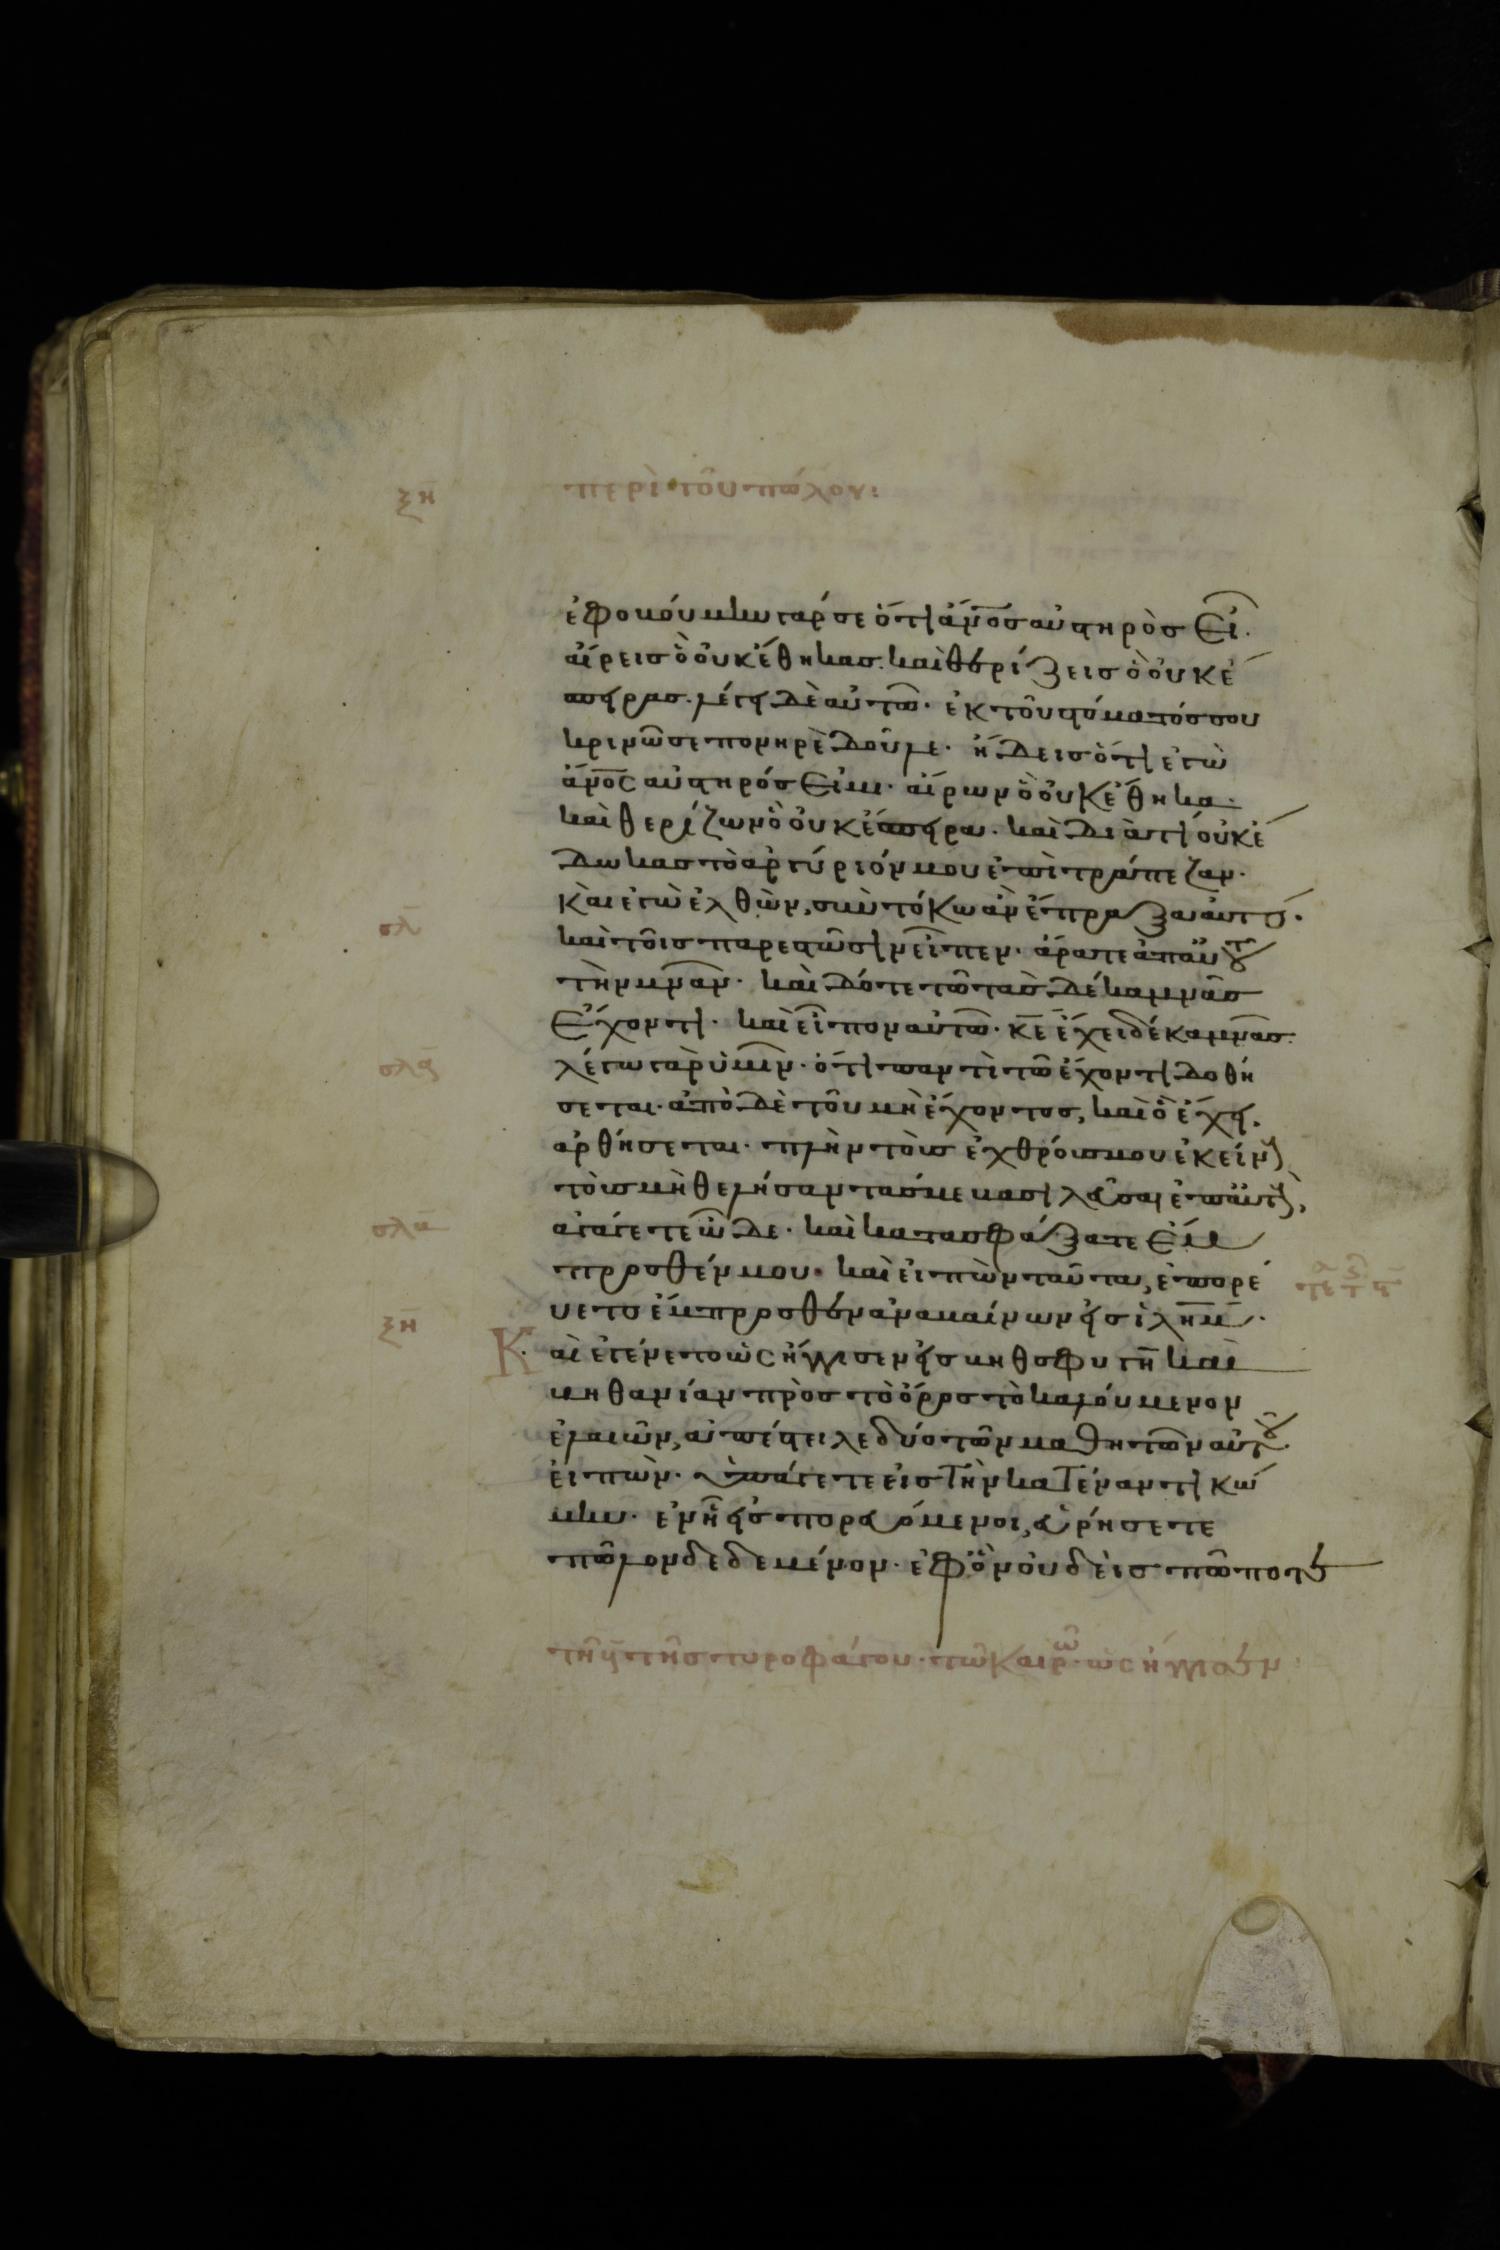 ξη περὶ τοῦ πώλου:
ἐφοβούμην γάρ σε ὅτι ἄνος αὐστηρὸς εἶ.
αἴρεις ὃ οὐκ ἔθηκας. καὶ θερίζεις ὃ οὐκ ἔ
σπειρας. λέγει δὲ αὐτῶ. ἐκ τοῦ στόματός σου
κρινῶ σε πονηρὲ δοῦλε. ἤδεις ὅτι ἐγὼ
ἄνος αὐστηρός εἰμι. αἴρων ὃ οὐκ ἔθηκα.
καὶ θερίζων ὃ οὐκ ἔσπειρα. καὶ διὰ τί οὐκ ἔ
δωκας τὸ ἀργύριόν μου ἐπὶ τράπεζαν.
καὶ ἐγὼ ἐλθὼν, σὺν τόκω ἂν ἔπραξα αὐτό.
σλ καὶ τοῖς παρεστῶσιν εἶπεν. ἄρατε ἀπ αὐτοῦ
τὴν μνᾶν. καὶ δότε τῶ τὰς δέκα μνᾶς
ἔχοντι. καὶ εἶπον αὐτῶ. κε ἔχει δέκα μνᾶς.
λέγω γὰρ ὑμῖν. ὅτι παντὶ τῶ ἔχοντι δοθή
σεται. ἀπὸ δὲ τοῦ μὴ ἔχοντος, καὶ ὃ ἔχει.
ἀρθήσεται. πλὴν τοὺς ἐχθρούς μου ἐκείνους
τοὺς μὴ θελήσαντάς με βασιλεῦσαι ἐπ αὐτούς,
σλα ἀγάγετε ὧδε. καὶ κατασφάξατε ἔμ
προσθέν μου. καὶ εἰπὼν ταῦτα, ἐπορε
ύετο ἔμπροσθεν ἀναβαίνων εἰς ιλημ.
ξη Καὶ ἐγένετο ὡς ἤγγισεν εἰς βηθσφαγῆ καὶ
βηθανίαν πρὸς τὸ ὄρος τὸ καλούμενον
ἐλαιῶν, ἀπέστειλε δύο τῶν μαθητῶν αὐτοῦ
εἰπὼν. ὑπάγετε εἰς τὴν κατέναντι κώ
μην. ἐν ἧ εἰσπορευόμενοι, εὑρήσετε
πῶλον δεδεμένον. ἐφ ὃν οὐδεὶς πώποτε
τῆ γ τῆς τυροφάγου. τῶ καιρῶ. ὡς ἤγγισεν